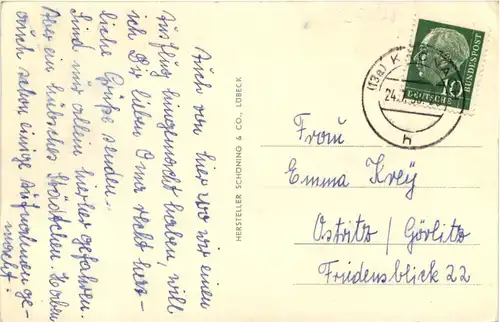 Auch von hier wo wir einen
Ausflug hingemacht haben, will
ich Dir lieben Oma recht herz-
liche Grüße senden.
Sind mit allen hierher gefahren.
ein hübsches Städtchen. Haben
auch schon einige Aufnahmen ge-
macht.
HERSTELLER SCHÖNING & CO., LÜBECK
DEUTSCHE
BUNDESPOST
10
(13a)
24.
h
Frau
Emma Krey
Ostritz / Görlitz
Friedensblick 22